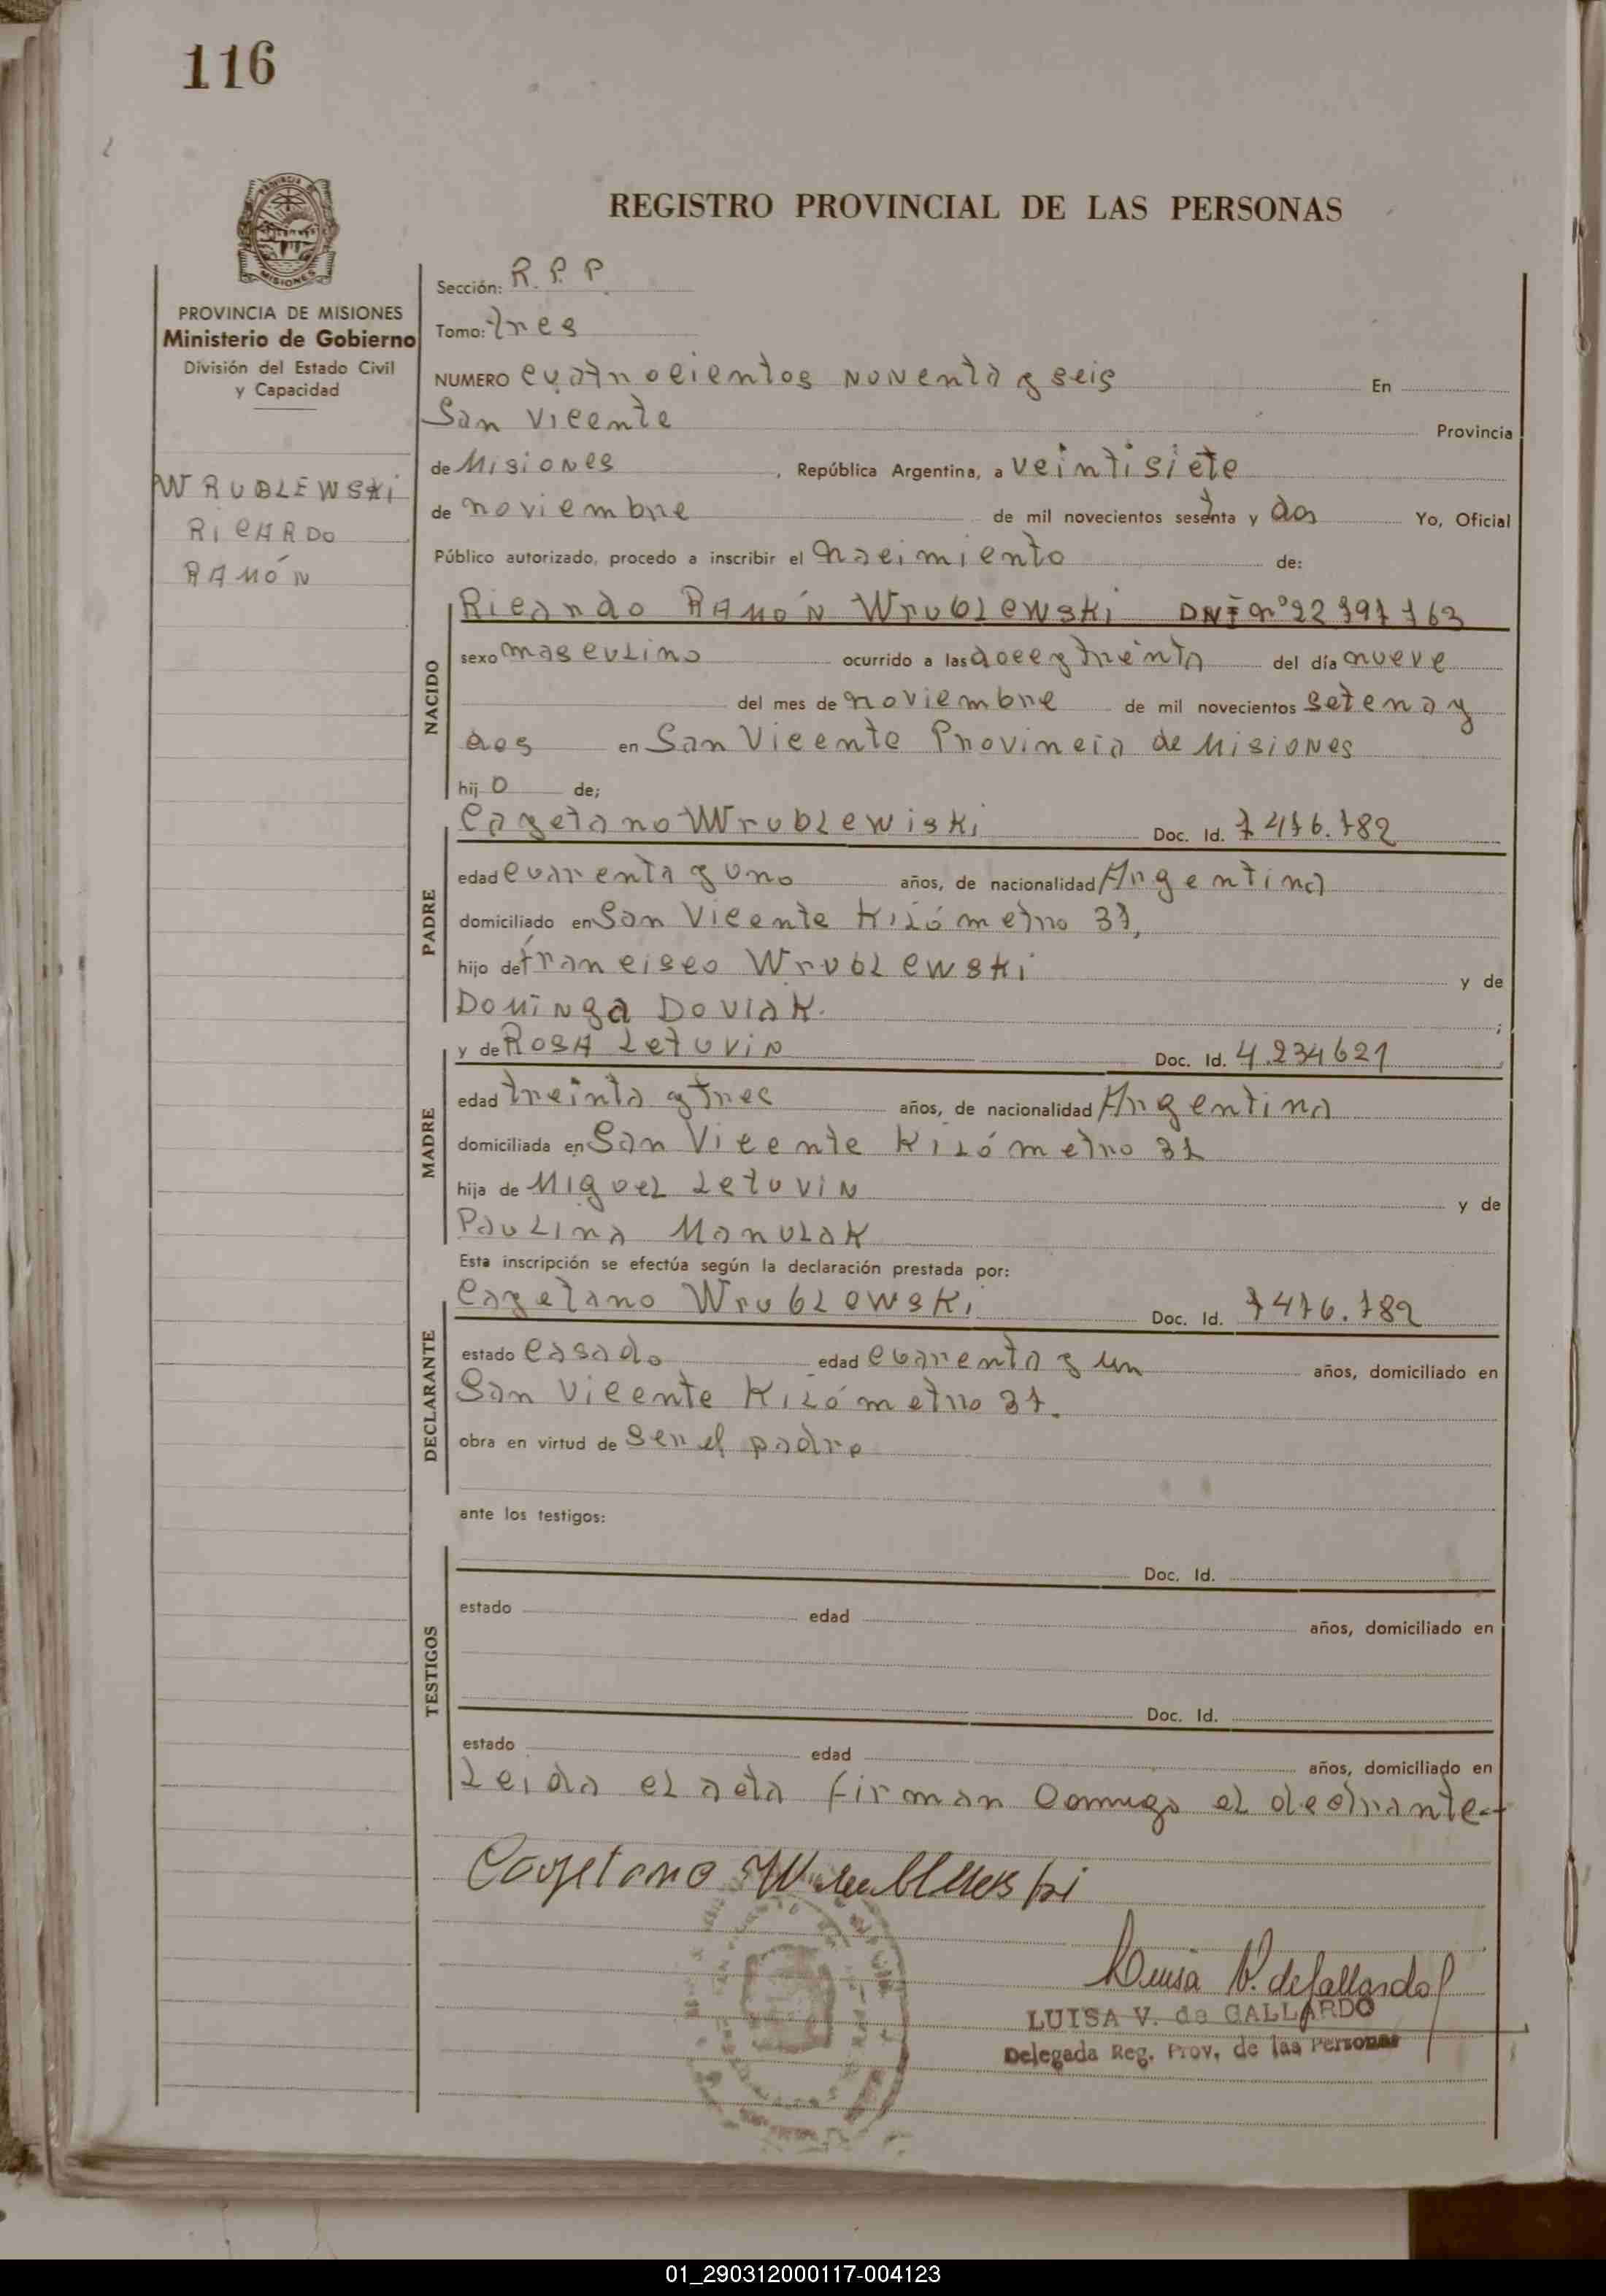 116
REGISTRO PROVINCIAL DE LAS PERSONAS
PROVINCIA DE MISIONES
Ministerio de Gobierno
División del Estado Civil
y Capacidad
WRUBLEWSKI
RICARDO
RAMÓN
Sección: R.P.P
Tomo: tres
NUMERO cuatrocientos noventa y seis En
San Vicente Provincia
de Misiones, República Argentina, a veintisiete
de noviembre de mil novecientos sesenta y dos Yo, Oficial
Público autorizado, procedo a inscribir el nacimiento de:
NACIDO
Ricardo Ramón Wrublewski DNI nº 22 797 763
sexo masculino ocurrido a las doce y treinta del día nueve
del mes de noviembre de mil novecientos setena y
dos en San Vicente Provincia de Misiones
hijo de;
PADRE
Cayetano Wrublewiski Doc. Id. 7476.782
edad cuarenta y uno años, de nacionalidad Argentina
domiciliado en San Vicente Kilómetro 37,
hijo de francisco Wrublewski y de
Dominga Doviak.
MADRE
y de Rosa Letuvin Doc. Id. 4.234621
edad treinta y tres años, de nacionalidad Argentina
domiciliada en San Vicente Kilómetro 37
hija de Miguel Letuvin y de
Paulina Manulak
Esta inscripción se efectúa según la declaración prestada por:
DECLARANTE
Cayetano Wrublewski Doc. Id. 7476.782
estado casado edad cuarenta y un años, domiciliado en
San Vicente Kilómetro 37.
obra en virtud de ser el padre
ante los testigos:
TESTIGOS
Doc. Id.
estado edad años, domiciliado en
Doc. Id.
estado edad años, domiciliado en
Leida el acta firman Comigo el declrante
Cayetano Wrublewski
Luisa V. de Gallardo
LUISA V. de GALLARDO
Delegada Reg. Prov. de las Personas
01_290312000117-004123